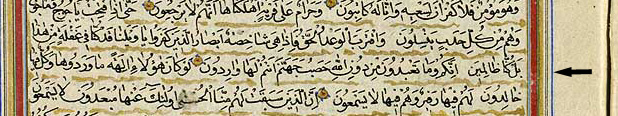 وهو مؤمن فلا كفران لسعيه وانا له كاتبون وحرام على قرية اهلكناها انهم لا يرجعون حتى اذا فتحت ياجوج وماجوج
وهم من كل حدب ينسلون واقترب الوعد الحق فاذا هي شاخصة ابصار الذين كفروا يا ويلنا قد كنا في غفلة من هذا
بل كنا ظالمين انكم وما تعبدون من دون الله حصب جهنم انتم لها واردون لو كان هؤلاء الهة ما وردوها وكل فيها
خالدون لهم فيها زفير وهم فيها لا يسمعون ان الذين سبقت لهم منا الحسنى اولئك عنها مبعدون لا يسمعون